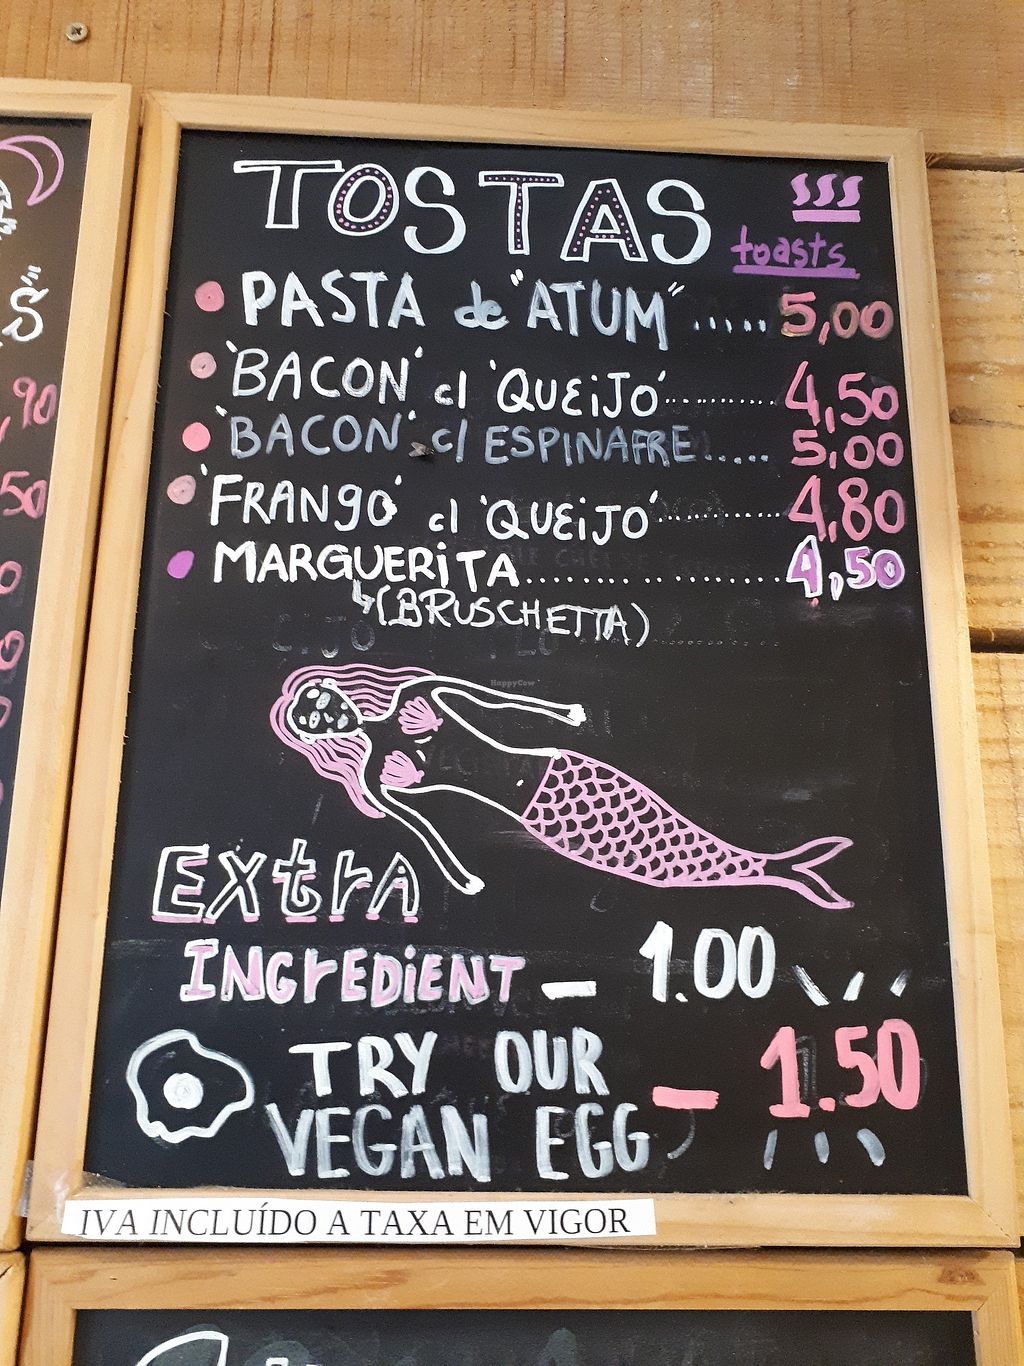 TOSTAS
toasts
PASTA de "ATUM" ..... 5,00
'BACON' c/ 'QUEIJO' .......... 4,50
'BACON' c/ ESPINAFRE ..... 5,00
'FRANGO' c/ 'QUEIJO' .......... 4,80
MARGUERITA .................... 4,50
(BRUSCHETTA)
HappyCow
Extra
INGREDIENT – 1.00
TRY OUR
VEGAN EGG – 1.50
IVA INCLUÍDO A TAXA EM VIGOR
S
,90
50
0
0